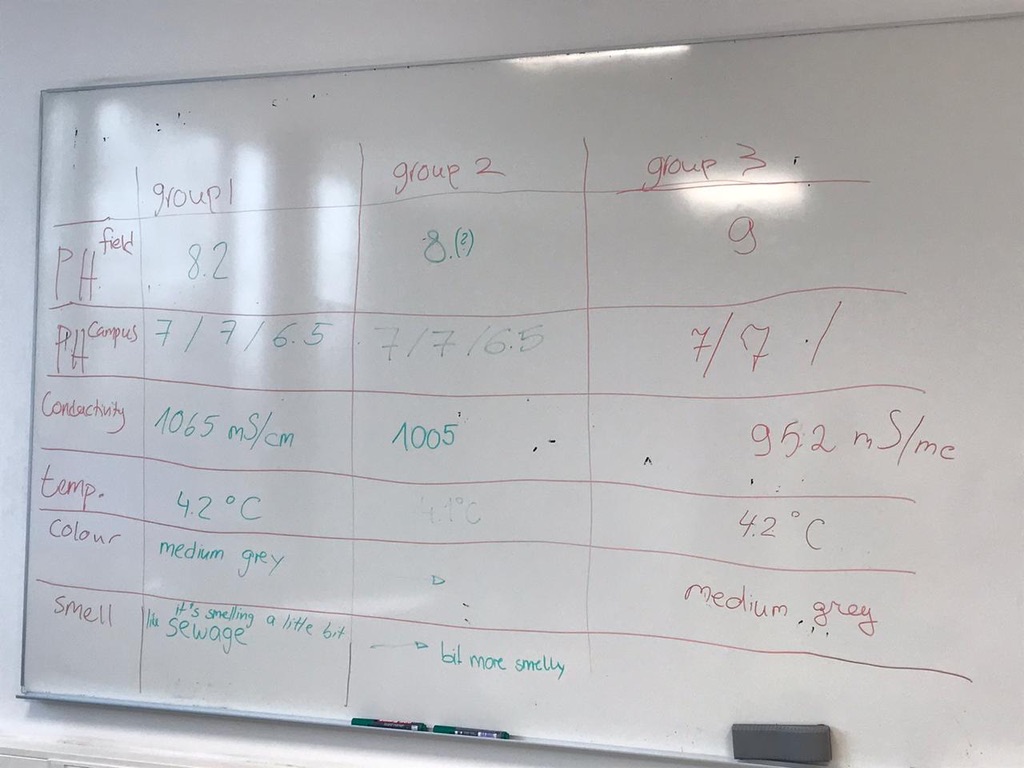 group 1 group 2 group 3
PH field 8.2 8.(?) 9
PH Campus 7 / 7 / 6.5 7 / 7 / 6.5 7 / 7 /
Conductivity 1065 mS/cm 1005 952 mS/mc
temp. 4.2 °C 4.1°C 4.2 °C
Colour medium grey medium grey
smell it's smelling a little bit
like sewage bit more smelly